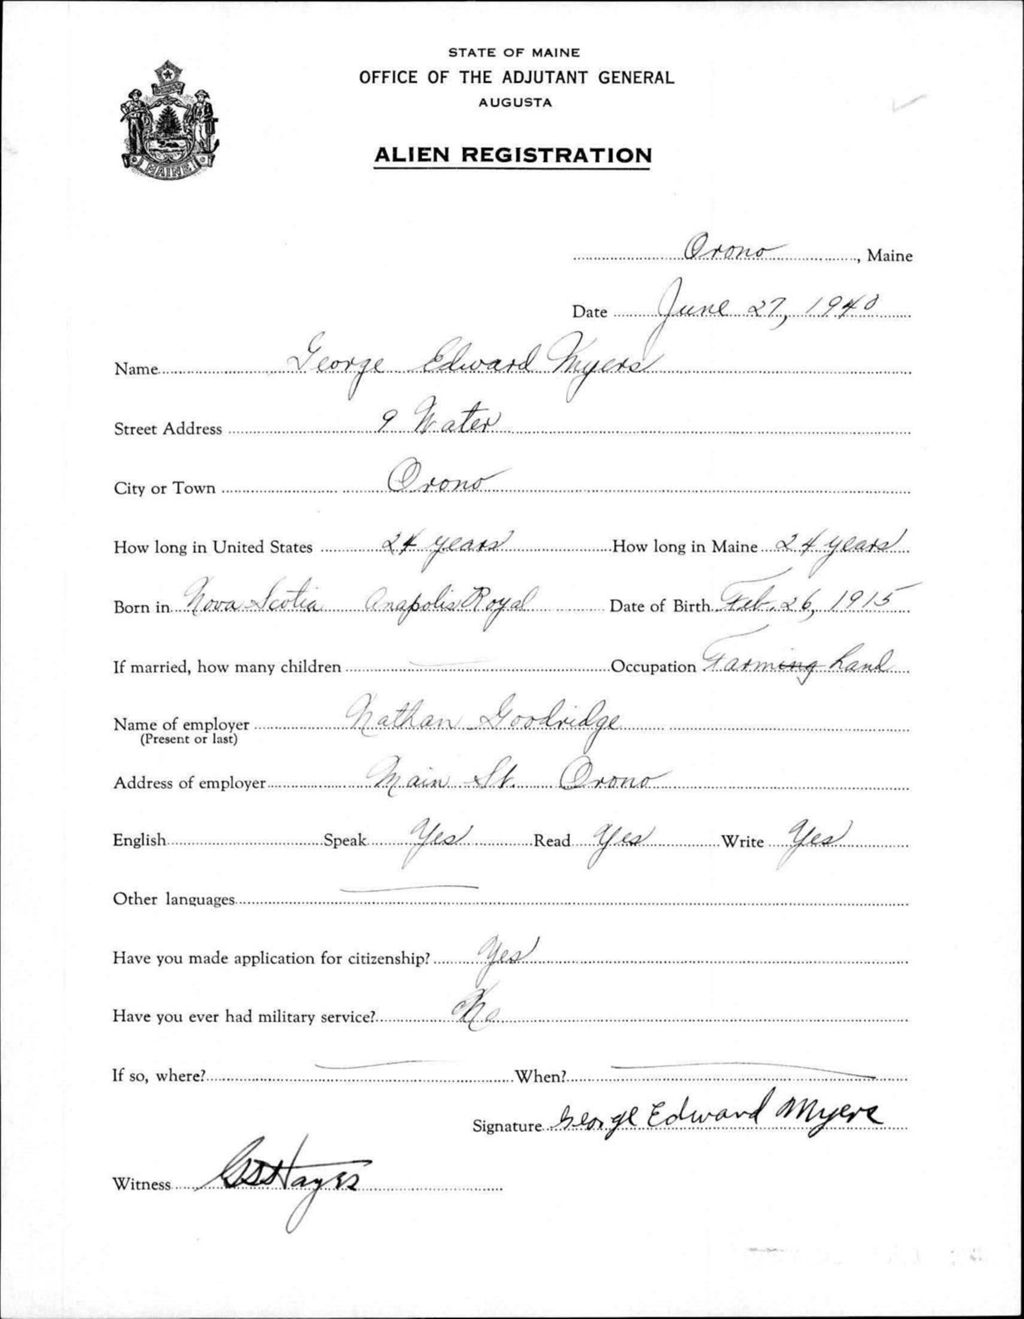 STATE OF MAINE
OFFICE OF THE ADJUTANT GENERAL
AUGUSTA
ALIEN REGISTRATION
MAINE
Orono, Maine
Date June 27, 1940
Name George Edward Myers
Street Address 9 Water
City or Town Orono
How long in United States 24 years How long in Maine 24 years
Born in Nova Scotia Anapolis Royal Date of Birth Feb. 26, 1915
If married, how many children Occupation Farming hand
Name of employer Nathan Goodridge
(Present or last)
Address of employer Main St. Orono
English Speak Yes Read Yes Write Yes
Other languages
Have you made application for citizenship? Yes
Have you ever had military service? No
If so, where? When?
Signature George Edward Myers
Witness Hayes